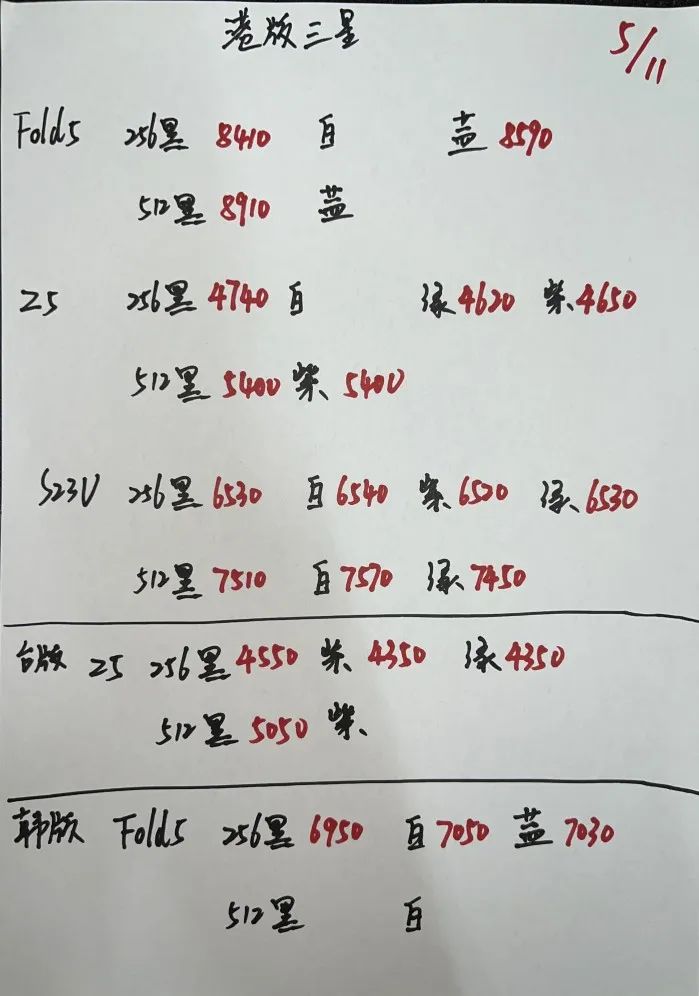 港版三星 5/11
Fold5 256黑 8410 白 蓝 8590
512黑 8910 蓝
Z5 256黑 4740 白 绿 4620 紫 4650
512黑 5400 紫 5400
S23U 256黑 6530 白 6540 紫 6520 绿 6530
512黑 7510 白 7570 绿 7450
台版 Z5 256黑 4550 紫 4350 绿 4350
512黑 5050 紫
韩版 Fold5 256黑 6950 白 7050 蓝 7030
512黑 白